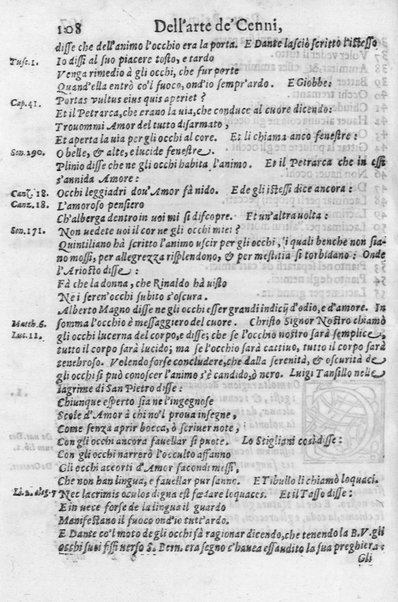 108 Dell'arte de' Cenni,
disse che dell'animo l'occhio era la porta. E Dante lasciò scritto l'istesso
Tusc.1. Io dissi al suo piacere tosto, e tardo
Venga rimedio à gli occhi, che fur porte
Quand'ella entrò co'l fuoco, ond'io sempr'ardo. E Giobbe:
Cap.41. Portas vultus eius quis aperiet?
Et il Petrarca, che erano la uia, che conduce al cuore dicendo:
Trouommi Amor del tutto disarmato,
Et aperta la uia per gli occhi al core. Et li chiama anco fenestre:
Son.190. O belle, & alte, e lucide fenestre.
Plinio disse che ne gli occhi habita l'animo. Et il Petrarca che in essi
s'annida Amore:
Canz.18. Occhi leggiadri dou'Amor fà nido. E de gli istessi dice ancora:
Canz.18. L'amoroso pensiero
Ch'alberga dentro in uoi mi si discopre. Et un'altra uolta:
Son.171. Non uedete uoi il cor ne gli occhi miei?
Quintiliano hà scritto l'animo uscir per gli occhi, i quali benche non sia-
no mossi, per allegrezza risplendono, & per mestitia si torbidano: Onde
l'Ariosto disse:
Fà che la donna, che Rinaldo hà uisto
Ne i seren'occhi subito s'oscura.
Alberto Magno disse ne gli occhi esser grandi indicij d'odio, e d'amore. In
Matth.6. somma l'occhio è messaggiero del cuore. Christo Signor Nostro chiamò
Luc.11. gli occhi lucerna del corpo, e disse; che se l'occhio nostro sarà semplice,
tutto il corpo sarà lucido; ma se l'occhio sarà cattiuo, tutto il corpo sarà
tenebroso. Volendo forse concludere, che dalla serenità, & oscurità de
gli occhi si può conoscer l'animo s'è candido, ò nero. Luigi Tansillo nelle
lagrime di San Pietro disse:
Chiunque esperto sia ne l'ingegnose
Scole d'Amor à chi no'l proua insegne,
Come senza aprir bocca, ò scriuer note;
Con gli occhi ancora fauellar si puote. Lo Stigliani così disse:
Con gli occhi narrerò l'occulto affanno
Gli occhi accorti d'Amor facondi messi,
Che non han lingua, e fauellar pur sanno. E Tibullo li chiamò loquaci.
Li.2. eleg.7 Nec lacrimis oculos digna est fœdare loquaces. Et il Tasso disse:
E in uece forse de la lingua il guardo
Manifestano il fuoco ond'io tutt'ardo.
E Dante co'l moto de gli occhi fà ragionar dicendo, che tenendo la B.V. gli
occhi suoi fissi uerso S. Bern. era segno c'hauea essaudito la sua preghiera:
Gli